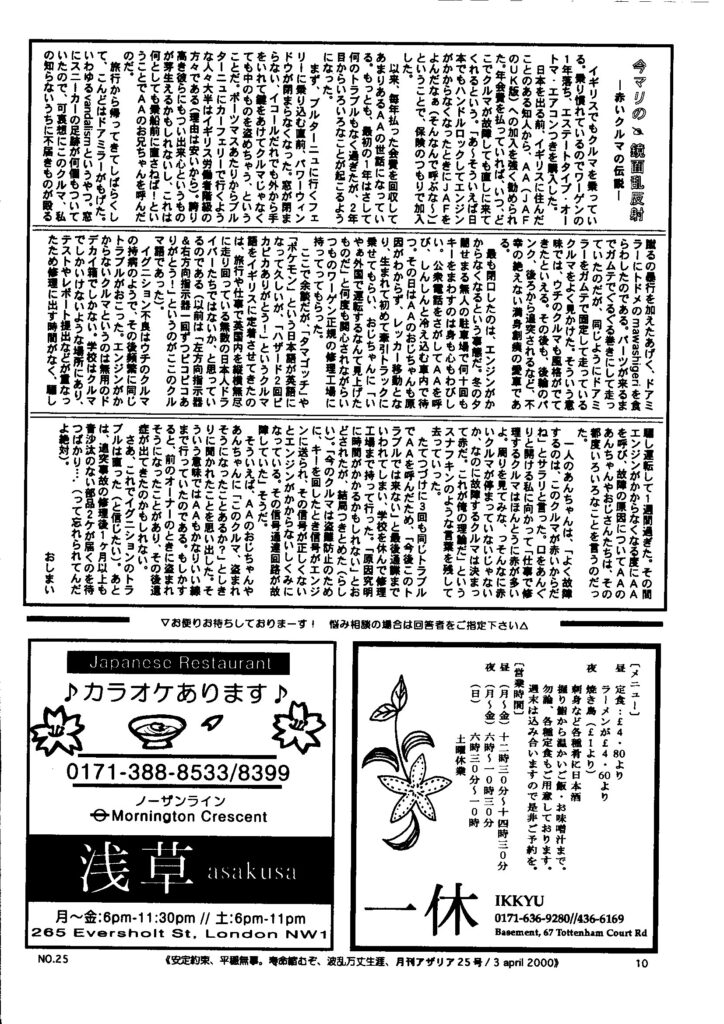 今マリの 鏡面乱反射
―赤いクルマの伝説―
イギリスでもクルマを乗ってい
る。乗り慣れているのでワーゲンの
1年落ち、エステートタイプ・オー
トマ・エアコンつきを購入した。
日本を出る前、イギリスに住んだ
ことのある知人から、AA(JAF
のUK版)への加入を強く勧められ
た。年会費を払っていれば、いつ、ど
こでクルマが故障しても直しに来て
くれるという。「あ〜そういえば日
本でもハンドルロックしてエンジン
がかからなくなったときにJAFを
よんだなぁ(そんなんで呼ぶな〜)
ということで、保険のつもりで加入
した。
以来、毎年払った会費を回収して
あまりあるAAの世話になってい
る。もっとも、最初の1年はさして
何のトラブルもなく過ぎたが、2年
目からいろいろなことが起こるよう
になった。
まず、ブルターニュに行くフェ
リーに乗り込む直前、パワーウィン
ドウが閉まらなくなった。窓が閉ま
らない、イコールだれでも外から手
をいれて鍵をあけてクルマじゃなく
ても中のものを盗めちゃう、という
ことだ。ポーツマスあたりからブル
ターニュにカーフェリーで行くよう
な人々大半はイギリス労働者階級の
方々である(理由は安いから)。誇り
高き彼らにもつい出来心というもの
が芽生えるかもしれない。これは
何としても乗船前に直さねば!とい
うことでAAのお兄ちゃんを呼んだ
のだ。
旅行から帰ってきてしばらくし
て、こんどはドアミラーがもげた。
いわゆるvandalismというやつ。窓
にスニーカーの足跡が何個もついて
いたので、可哀想にこのクルマ、私
の知らないうちに不届きものが殴る
蹴るの暴行を加えたあげく、ドアミ
ラーにトドメのmawashigeriを食
らわしたのである。パーツが来るま
でガムテでぐるぐる巻きにして走っ
ていたのだが、同じようにドアミ
ラーをガムテで固定して走っている
クルマをよく見かけた。そういう意
味では、ウチのクルマも風格がでて
きたといえる。その後も、後輪のパ
ンク、後ろから追突されるなど、不
幸の絶えない満身創痍の愛車であ
る。
最も閉口したのは、エンジンがか
からなくなるという事態だ。冬の夕
闇せまる無人の駐車場で何十回も
キーをまわすのは身も心もわびし
い。公衆電話をさがしてAAを呼
び、しんしんと冷え込む車内で待
つ。その日はAAのおじちゃんも原
因がわからず、レッカー移動とな
り、生まれて初めて牽引トラックに
乗せてもらい、おじちゃんに「い
やぁ外国で運転するなんて見上げた
ものだ」と何度も関心されながらい
つものワーゲン正規の修理工場に
持ってってもらった。
ここで余談だが、「タマゴッチ」や
「ポケモン」という日本語が英語に
なって久しいが、「ハザード2回ピ
カピカありがとう!」というクルマ
語をイギリスに定着させてきたの
は、旅行や仕事で英国内を縦横無尽
に走り回っている無数の日本人ドラ
イバーたちではないか、と思ってい
るのである(以前は「左方向指示器
&右方向指示器一回ずつピコピコあ
りがとう!」というのがここのクル
マ語であった)。
イグニション不良はウチのクルマ
の持病のようで、その後頻繁に同じ
トラブルがおこった。エンジンがか
からないクルマというのは無用のド
デカイ箱でしかない。学校はクルマ
でしかいけないような場所にあり、
テストやレポート提出などが重なっ
たため修理に出す時間がなく、騙し
騙し運転して1週間過ぎた。その間
エンジンがかからなくなる度にAA
を呼び、故障の原因についてAAの
あんちゃんやおじさんたちは、その
都度いろいろなことを言うのだっ
た。
一人のあんちゃんは、「よく故障
するのは、このクルマが赤いからだ
ね」とサラリと言った。口をあんぐ
りと開ける私に向かって「仕事で修
理するクルマはほんとうに赤が多い
よ。周りを見てみな、っそんなに赤
いクルマが停まっていないじゃない
か、なのに故障するクルマは決まっ
て赤だ。これが俺の理論だ」という
スナフキンのような言葉を残して
去っていった。
たてつづけに3回も同じトラブル
でAAを呼んだため、「今後このト
ラブルでは来ない」と最後通牒まで
いわれてしまい、学校を休んで修理
工場まで持って行った。「原因究明
に時間がかかるかもしれない」とお
どされたが、結局つきとめた(らし
い)。「今のクルマは盗難防止のため
に、キーを回したとき信号がエンジ
ンに送られ、その信号が正しくない
とエンジンがかからないしくみに
なっている。その信号通達回路が故
障していた」そうだ。
そういえば、AAのおじちゃんや
あんちゃんに「このクルマ、盗まれ
そうになったことあるか?」としき
りに聞かれたことを思い出した。そ
ういう意味ではAAもかなりいい線
まで行っていたのである。もしかす
ると、前のオーナーのときに盗まれ
そうになったことがあり、その後遺
症が出てきたのかもしれない。
さあ、これでイグニションのトラ
ブルは直った(と信じたい)。あと
は、追突事故の修理後1ヶ月以上も
音沙汰のない部品2ケが届くのを待
つばかり…(って忘れられてんだ
よ絶対)。
おしまい
▽お便りお待ちしておりまーす! 悩み相談の場合は回答者をご指定下さい△
Japanese Restaurant
♪カラオケあります♪
0171-388-8533/8399
ノーザンライン
Mornington Crescent
浅草 asakusa
月〜金:6pm-11:30pm // 土:6pm-11pm
265 Eversholt St, London NW1
〔メニュー〕
昼 定食:£4・80より
ラーメンが£4・60より
夜 焼き鳥(£1より)
刺身など各種肴に日本酒
握り鮨から温かいご飯・お味噌汁まで。
勿論、各種定食もご用意しております。
週末は込み合いますので是非ご予約を。
〔営業時間〕
昼(月〜金)十二時三0分〜十四時三0分
夜(月〜金)六時〜一0時三0分
(日)六時三0分〜一0時
土曜休業
一休
IKKYU
0171-636-9280//436-6169
Basement, 67 Tottenham Court Rd
NO.25
《安定約束、平穏無事。寿命縮むぞ、波乱万丈生涯、月刊アザリア25号/3 april 2000》
10